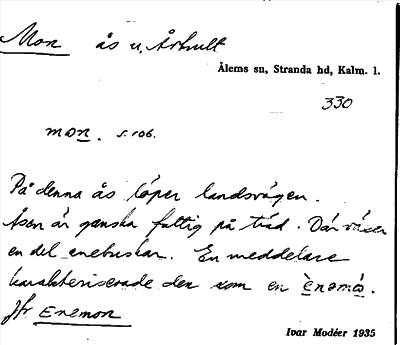 Mon ås u. Århult
Ålems sn, Stranda hd, Kalm. l.
330
mon. s. 106.
På denna ås löper landsvägen.
Åsen är ganska fattig på träd. Där växer
en del enebuskar. En meddelare
karakteriserade den som en ènəmó.
Jfr Enemon
Ivar Modéer 1935